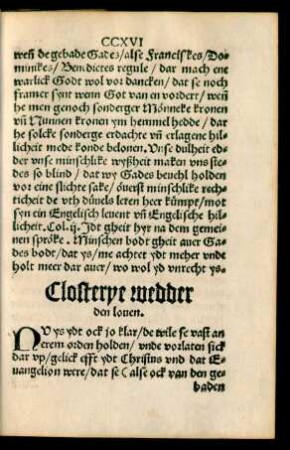 CCXVI
weñ de gebade Gades/alse Franciskes/Do-
minikes/Benedictes regule/dar mach ene
warlick Godt wol vor dancken/dat se noch
framer synt wenn Got van en vordert/weñ
he men genoch sonderger Mönneke kronen
vñ Nunnen kronen ym hemmel hedde/dar
he solcke sonderge erdachte vñ erlagene hil-
licheit mede konde belonen. Vnse dulheit ed-
der vnse minschlike wyßheit maken vns ste-
des so blind/dat wy Gades beuehl holden
vor eine slichte sake/öuerst minschlike rech-
ticheit de vth düuels leren heer kümpt/mot
syn ein Engelisch leuent vñ Engelische hil-
licheit. Col.ij. Idt gheit hyr na dem gemei-
nen spröke. Minschen bodt gheit auer Ga-
des bodt/dat ys/me achtet ydt meher vnde
holt meer dar auer/wo wol yd vnrecht ys.
Closterye wedder
den louen.
NV ys ydt ock jo klar/de wile se vast an
erem orden holden/vnde vorlaten sick
dar vp/gelick efft ydt Christus vnd dat E-
uangelion were/dat se (alse ock van den ge-
baden